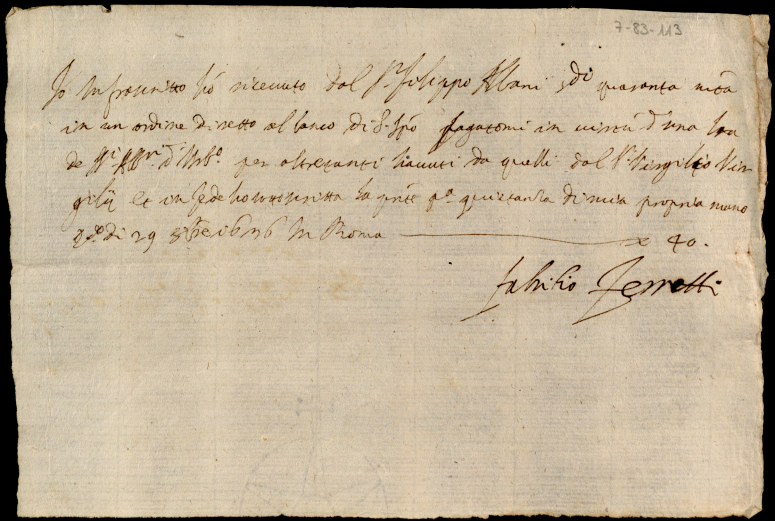 7-83-113
Io Infrascritto hò riceuuto dal S.r Filippo Albani di quaranta mta
in un ordine diretto al banco di S. Spo pagatomi in uirtù d'una lra
de SS.ri Albri d'Urb.o per altretanti hauuti da quelli dal S.r Virgilio Vir-
gilij et in fede ho sottoscritta la pnte quietanza di mia propria mano
q.o di 29 In Roma 40.
Fabritio Ferretti